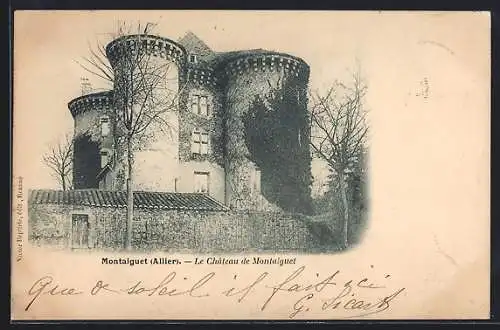 Victor Baptiste, édit., Roanne
Montaiguet (Allier). — Le Château de Montaiguet
Que de soleil il fait ici
G. Sicart